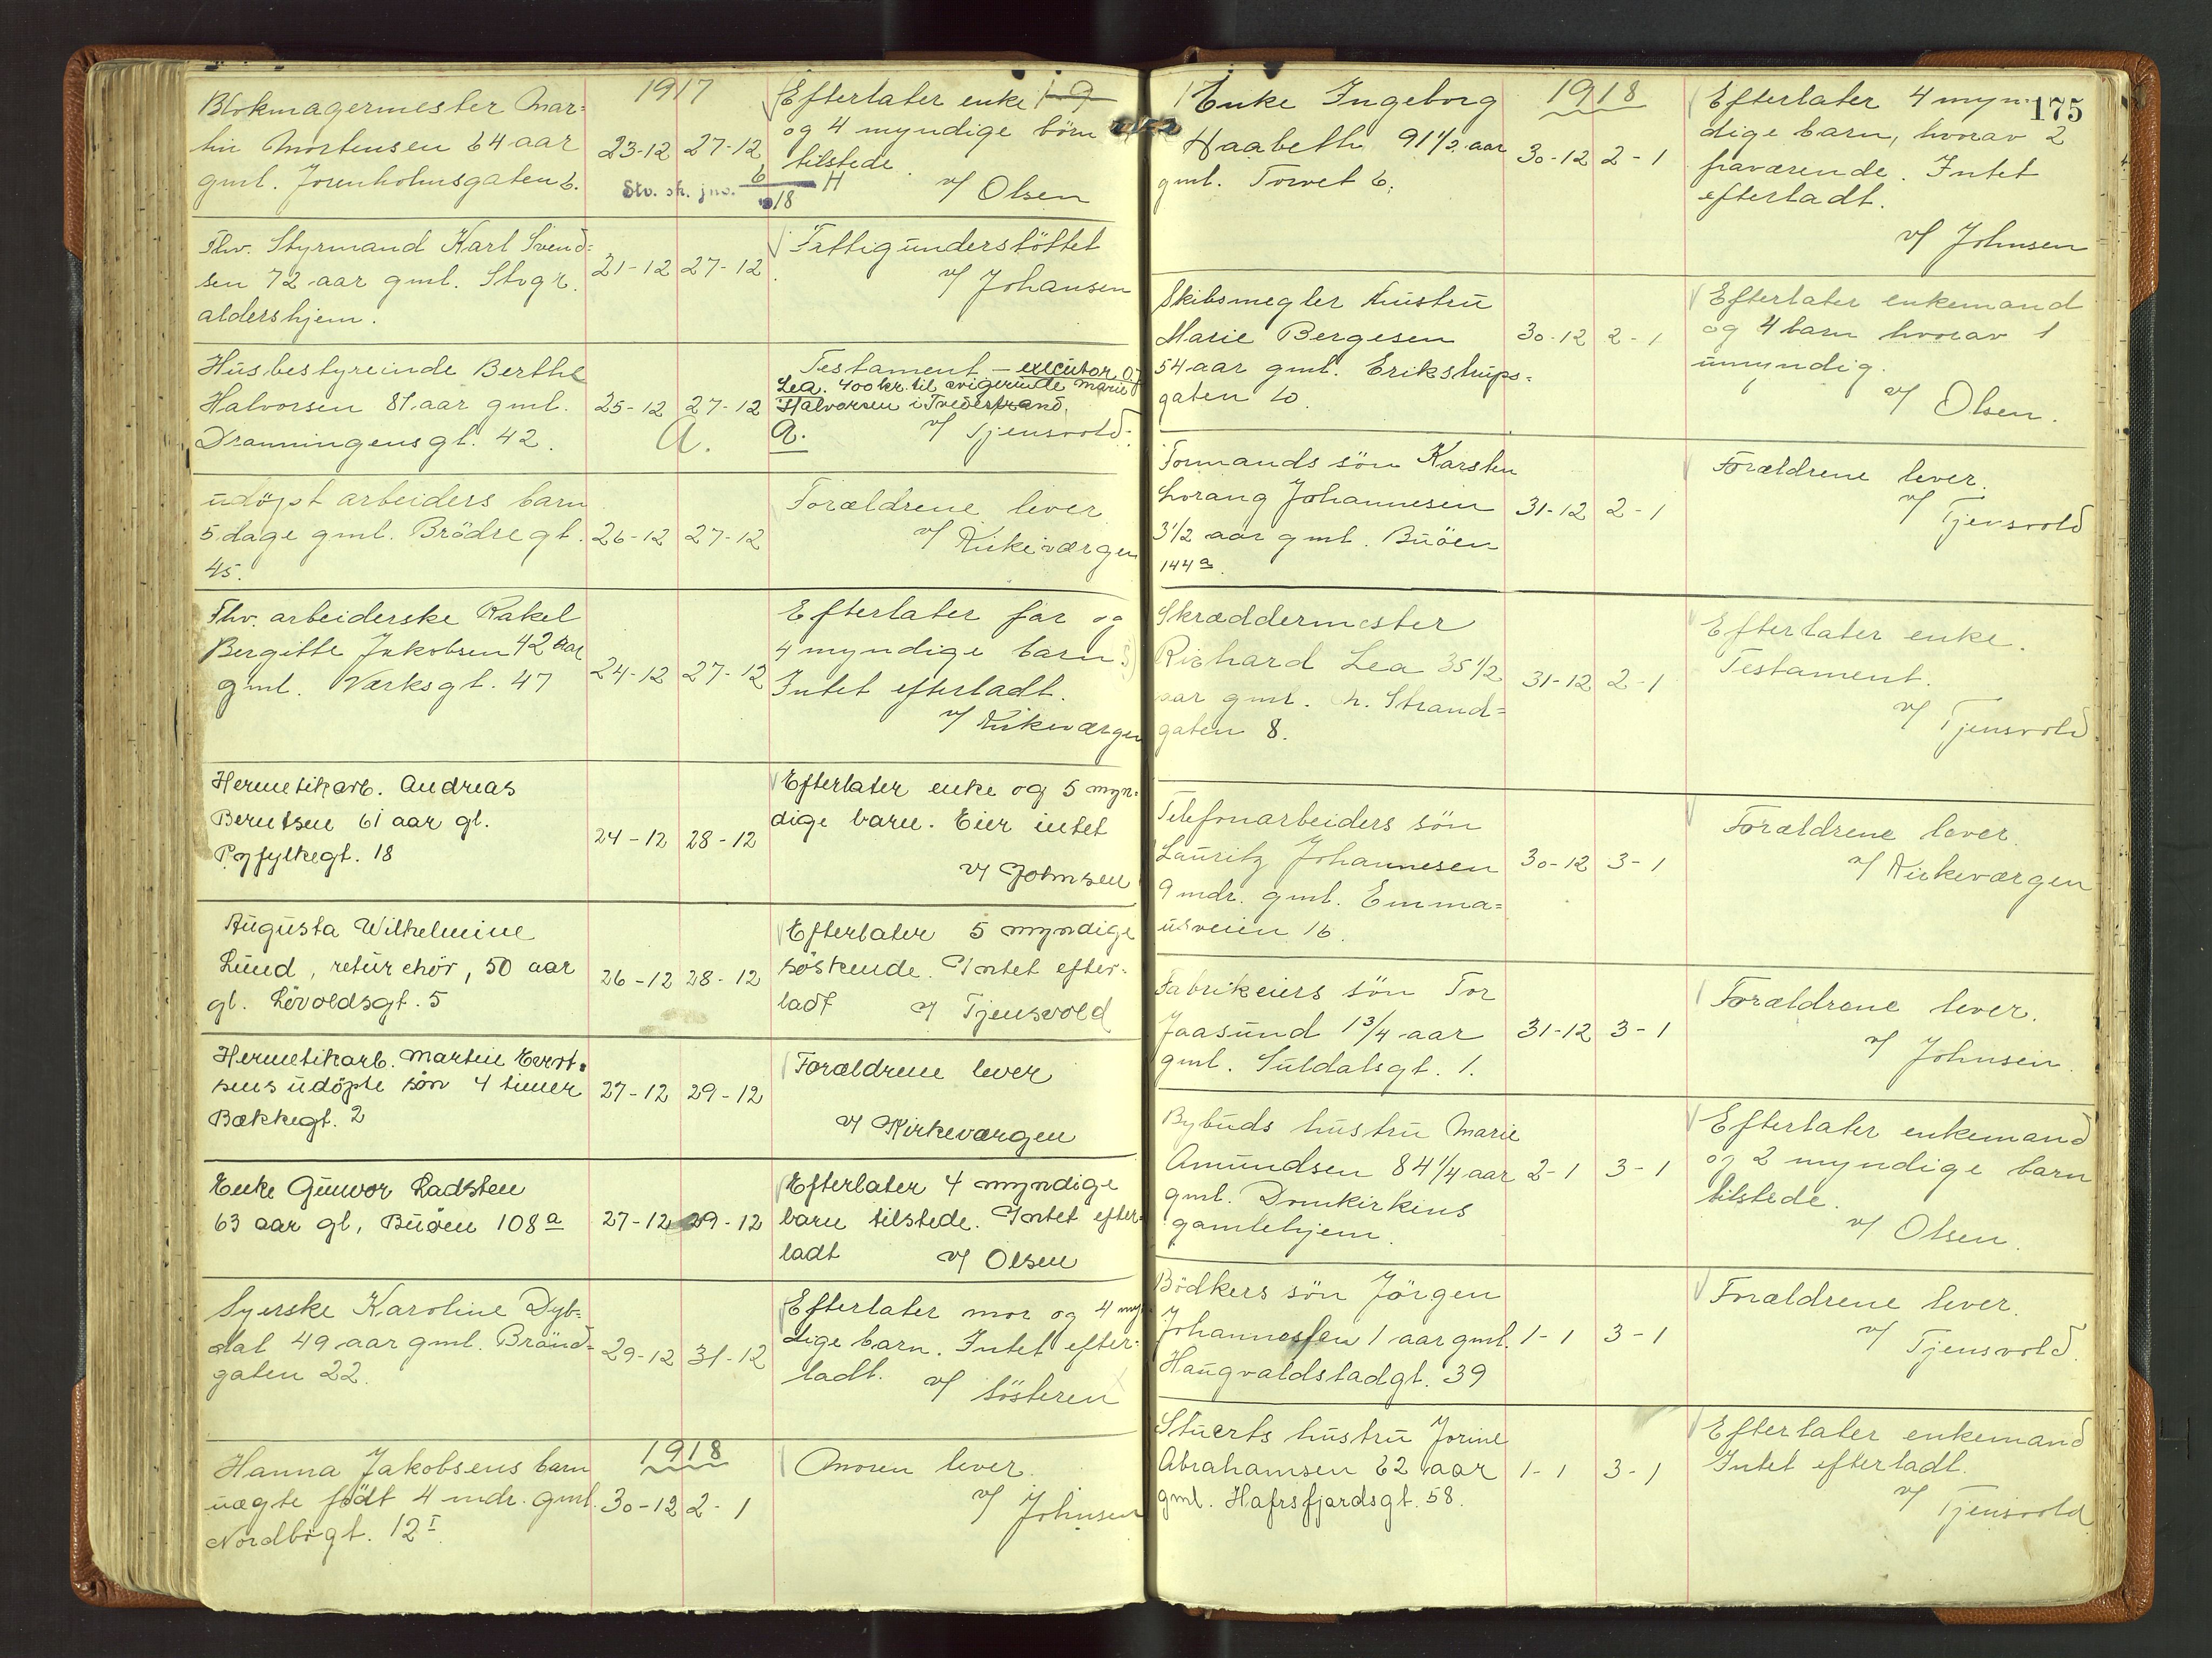 1917
Blokmagermester Mar=
tin Mortensen 64 aar
gml. Jorenholmsgaten 6.
23-12 27-12
Stv. sk. jno. 6/1918 H
Efterlater enke
og 4 myndige börn
tilstede.
v/ Olsen
Fhv. Styrmand Karl Svend=
sen 72 aar gml. Stvgr.
aldershjem.
21-12 27-12
Fattigunderstöttet
v/ Johansen
Husbestyreinde Berthe
Halvorsen 81 aar gml.
Dronningensgt. 42.
25-12 27-12
A.
Testament – executor O.
Lea. 400 kr. til svigerinde Marie
Halvorsen i Tvedestrand.
A. v/ Tjensvold.
udöpt arbeiders barn
5 dage gml. Brödregt.
45.
26-12 27-12
Forældrene lever
v/ Kirkeværgen
Fhv. arbeiderske Rakel
Bergitte Jakobsen 42 aar
gml. Værksgt. 47
24-12 27-12
Efterlater far og
4 myndige barn
Intet efterladt.
v/ Kirkeværgen
Hermetikarb. Andreas
Berntsen 61 aar gl.
Ryfylkegt. 18
24-12 28-12
Efterlater enke og 5 myn-
dige barn. Eier intet
v/ Johnsen
Augusta Wilhelmine
Lund, retürchör, 50 aar
gl. Lövoldsgt. 5
26-12 28-12
Efterlater 5 myndige
söskende. Intet efter-
ladt v/ Tjensvold
Hermetikarb. Martin Evert=
sens udöpte sön 4 timer
Bækkegt. 2
27-12 29-12
Forældrene lever
v/ Kirkeværgen
Enke Gunvor Ladsten
63 aar gl, Buöen 108 a
27-12 29-12
Efterlater 4 myndige
barn tilstede. Intet efter-
ladt v/ Olsen
Syerske Karoline Dyb=
dal 49 aar gml. Brönd-
gaten 22.
29-12 31-12
Efterlater mor og 4 myn
dige barn. Intet efter-
ladt. v/ Sösteren
1918
Hanna Jakobsens barn
uægte födt 4 mdr. gml.
Nordbögt. 12 I
30-12 2-1
Moren lever.
v/ Johnsen
175
1918
Enke Ingeborg
Haabeth 91 1/2 aar
gml. Torvet 6.
30-12 2-1
Efterlater 4 myn-
dige barn, hvorav 2
fraværende. Intet
efterladt.
v/ Johnsen
Skibsmegler hustru
Marie Bergesen
54 aar gml. Erikstrups=
gaten 10.
30-12 2-1
Efterlater enkemand
og 4 barn hvorav 1
umyndig.
v/ Olsen.
Formands sön Karsten
Lorang Johannesen
3 1/2 aar gml. Buöen
144 a.
31-12 2-1
Forældrene lever.
v/ Tjensvold
Skræddermester
Richard Lea 35 1/2
aar gml. N. Strand=
gaten 8.
31-12 2-1
Efterlater enke.
Testament.
v/ Tjensvold.
Telefonarbeiders sön
Lauritz Johannesen
9 mdr. gml. Emma=
usveien 16.
30-12 3-1
Forældrene lever.
v/ Kirkeværgen
Fabrikeiers sön Tor
Jaasund 1 3/4 aar
gml. Suldalsgt. 1.
31-12 3-1
Forældrene lever.
v/ Johnsen.
Bybuds hustru Marie
Amundsen 84 1/4 aar
gml. Domkirkens
gamlehjem.
2-1 3-1
Efterlater enkemand
og 2 myndige barn
tilstede.
v/ Olsen.
Bödkers sön Jörgen
Johannessen 1 aar gml.
Haugvaldstadgt. 39
1-1 3-1
Forældrene lever.
v/ Tjensvold.
Stuerts hustru Jorine
Abrahamsen 62 aar
gml. Hafrsfjordsgt. 58.
1-1 3-1
Efterlater enkemand
Intet efterladt.
v/ Tjensvold